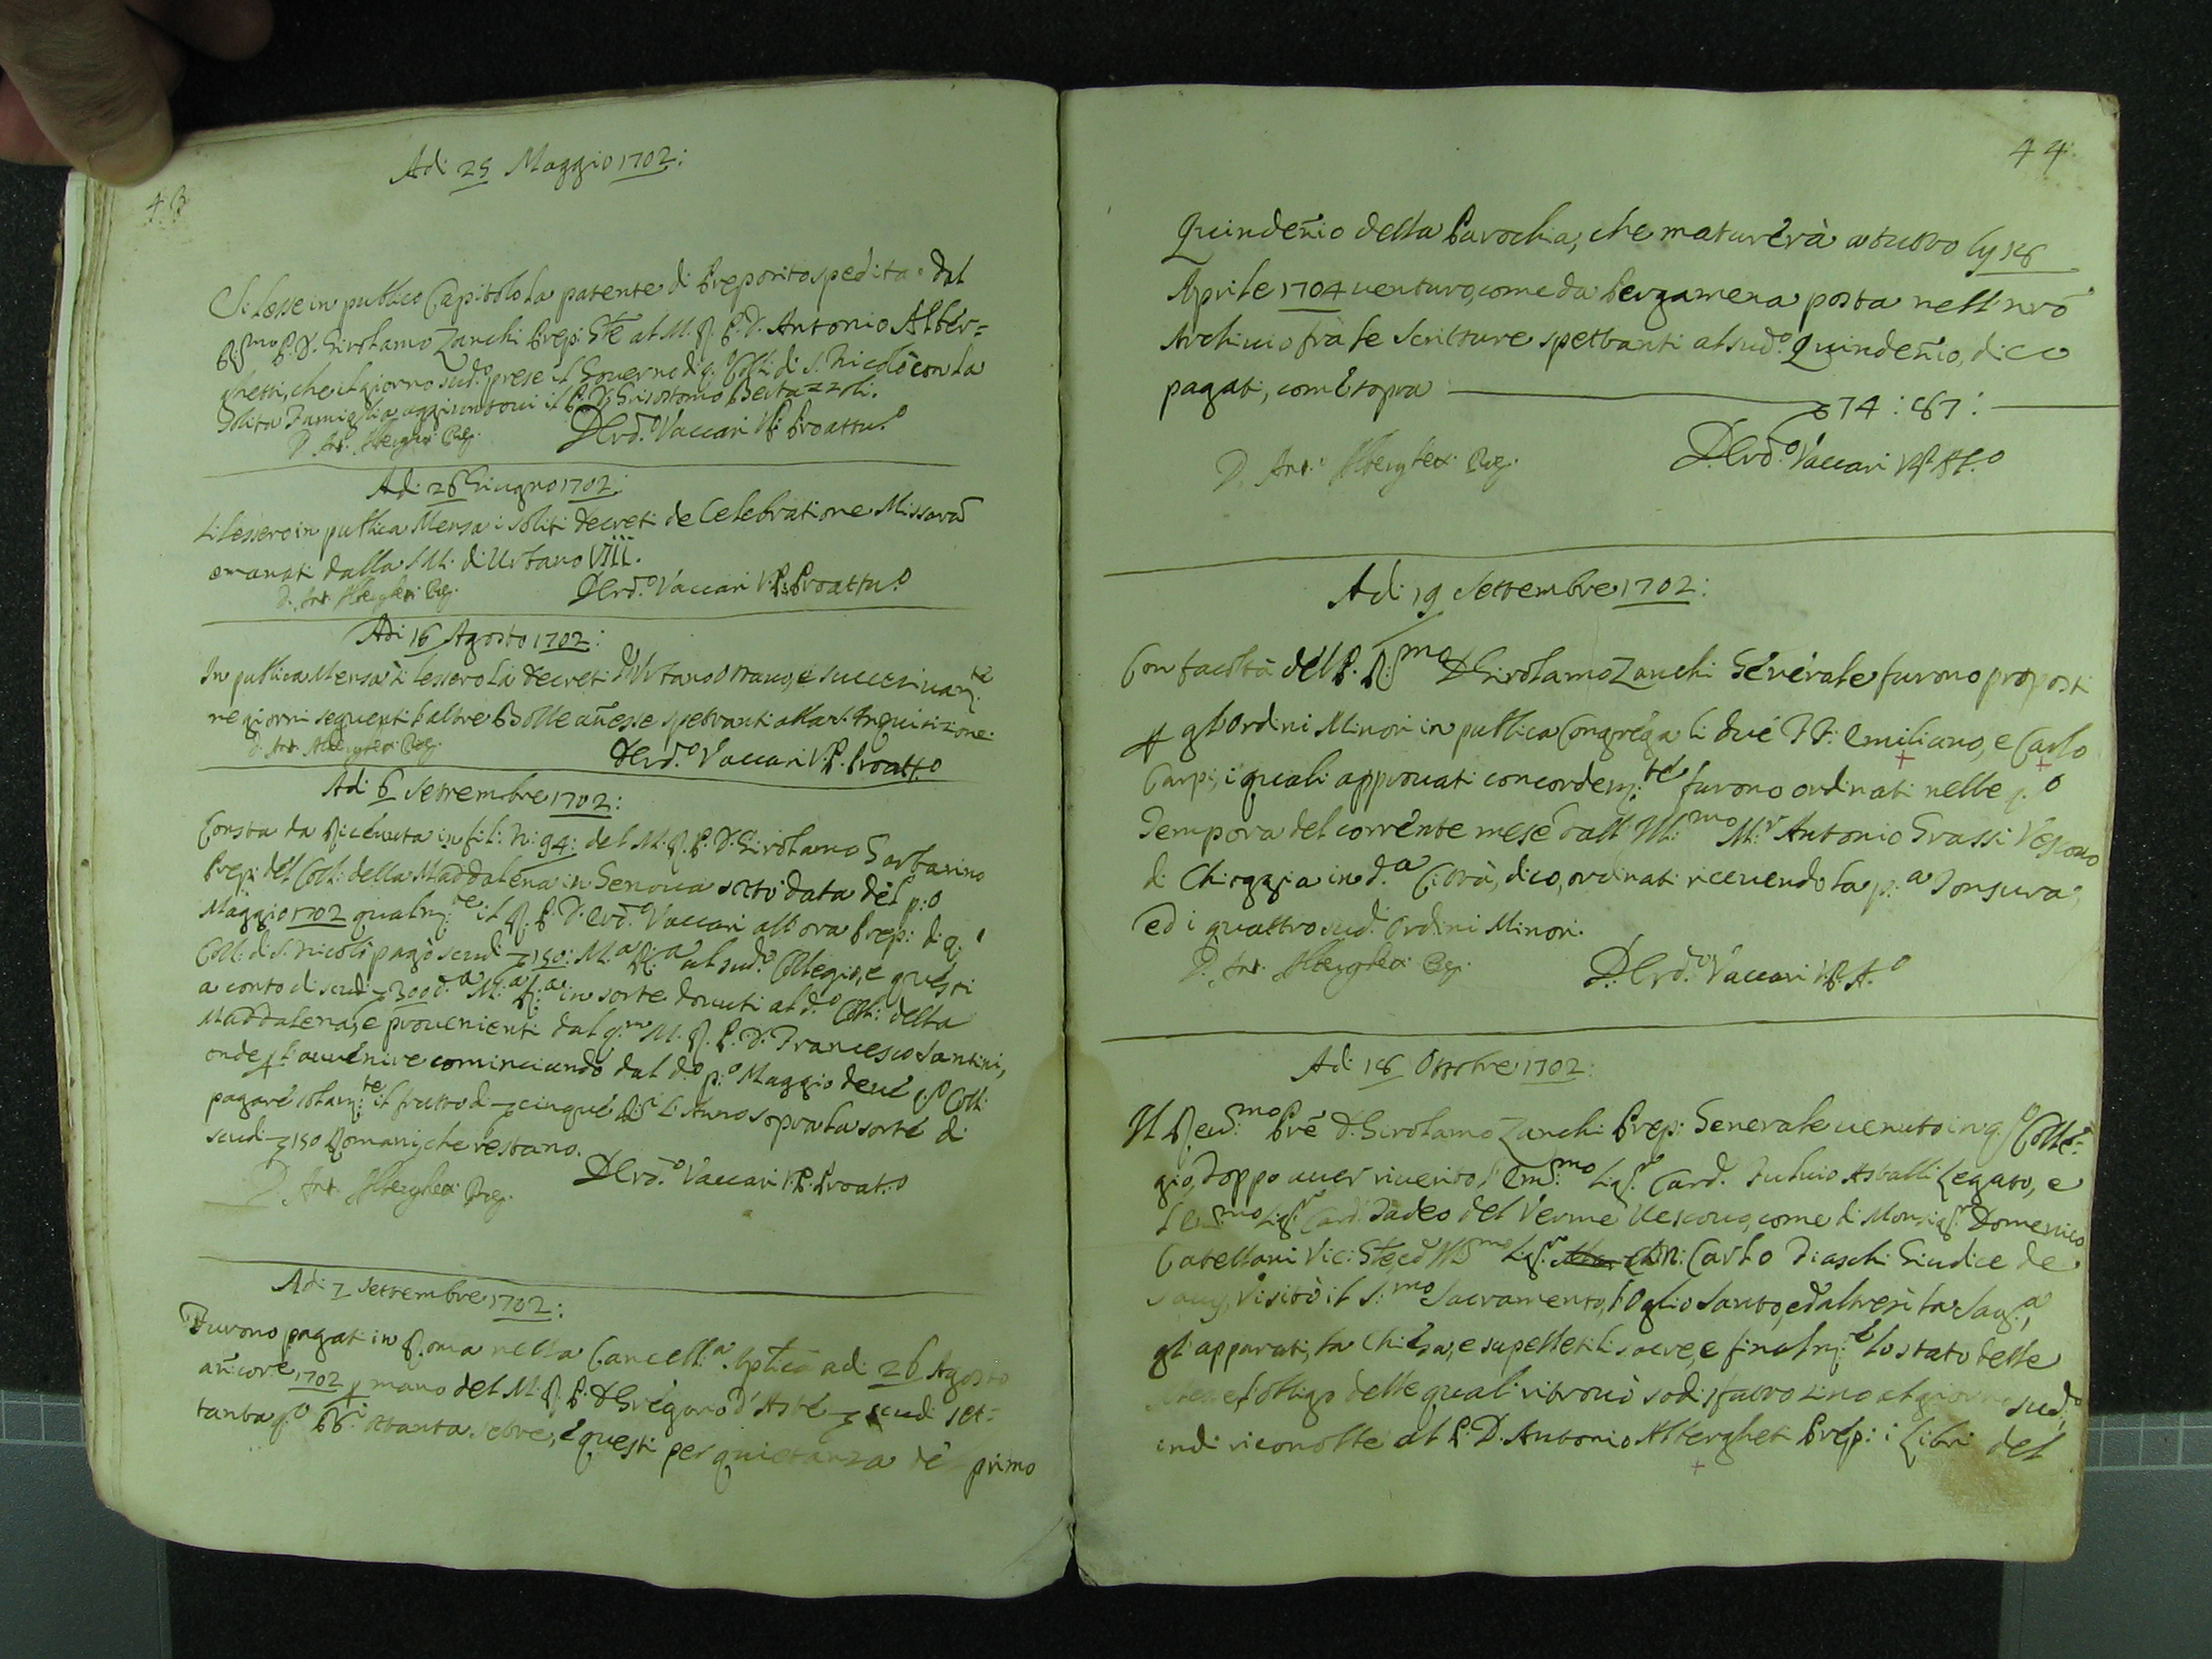 43
Adi 25 Maggio 1702:
Si lesse in publico Capitolo la patente di Preposito spedita dal
R:mo P. D. Girolamo Zanchi Prep: Gñle al M. R. P. D. Antonio Alber=
ghetti, che il giorno sud:o prese il Governo di q.o Coll: di S. Nicolò con la
solita Famiglia aggiuntovi il P. D. Grisostomo Bertazzoli.
D. Ant. Alberghetti Prep. D Evd.o Vaccari V. P. Proattu.o
Adi 26 Giugno 1702:
Si lessero in publica Mensa i soliti decreti de Celebratione Missarũ
emanati dalla S. M. di Urbano VIII.
D. Ant. Alberghetti Prep. D Evd.o Vaccari V. P. Proattu.o
Adi 16 Agosto 1702:
In publica Mensa si lessero li decreti d'Urbano Ottavo, e successivam:te
ne giorni seguenti l'altre Bolle añesse spettanti alla S. Inquisizione.
D. Ant. Alberghetti Prep. D Evd.o Vaccari V. P. Proatt.o
Adi 6 Settembre 1702:
Consta da Ricevuta in fil: N: 94: del M. R. P. D. Girolamo Gorbarino
Prep: del Coll: della Maddalena in Genova sotto data del p:o
Maggio 1702 qualm:te il R. P. D. Evd.o Vaccari all'ora Prep: di q:o
Coll: di S. Nicolò pagò scudi 150: M:a R:a al sud.o Collegio, e questi
a conto di scudi 300 d.a M:a R:a in sorte dovuti al d.o Coll: della
Maddalena, e provenienti dal q.m M. R. P. D. Francesco Santini,
onde p l'avvenire cominciando dal d.o p.o Maggio deve q.o Coll:
pagare solam:te il frutto di cinque R:i l'Anno sopra la sorte di
scudi 150 Romani, che restano.
D. Ant. Alberghetti Prep. D Evd.o Vaccari V. P. Proat.o
Adi 7 Settembre 1702:
Furono pagati in Roma nella Cancell:a Aptica adi 26 Agosto
añ: cor:e 1702 p mano del M. R. P. D Gregorio d'Aste scudi set=
tanta q.o bb:i ottanta sette, e questi per quietanza del primo
44:
Quindeñio della Parochia, che maturerà a tutto ly 18
Aprile 1704 venturo, come da Pergamena posta nell nrõ
Archivio frà le Scritture spettanti al sud.o Quindeñio, dico
pagati, come sopra 74: 87:
D. Ant.o Alberghetti Prep. D. Evd.o Vaccari V. P. At.o
Adi 19 Settembre 1702:
Con facoltà dell P. R:mo D Girolamo Zanchi Generale furono proposti
p gl'Ordini Minori in publica Congrega li due FF: Emiliano, e Carlo
Carpi, i quali approvati concordem:te furono ordinati nelle p.o
Tempora del corrente mese dall' Ill:mo M:r Antonio Grassi Vescovo
di Chioggia in d.a Città, dico, ordinati ricevendo la p:a Tonsura,
ed i quattro sud:i Ordini Minori.
D. Ant. Alberghetti Prep. D. Evd.o Vaccari V. P. A.o
Adi 18 Ottobre 1702:
Il Rev:mo Prẽ D. Girolamo Zanchi Prep: Generale venuto in q.o Colle=
gio, doppo aver riverito l'Em:mo Sig.r Card. Fulvio Astalli Legato, e
l'Em:mo Sig.r Card. Tadeo del Verme Vescovo, come di Monsig.r Domenico
Catellani Vic: Gñle, ed Ill:mo Sig.r N: Carlo Fiaschi Giudice de
Savij, Visitò il S:mo Sacramento, l'Oglio Santo, ed altresì la Sag:a,
gl'apparati, la Chiesa, e supelletili sacre, e finalm:te lo stato delle
Messe, l'obligo delle quali ritrovò sodisfatto sino al giorno sud:o,
indi riconobbe al P. D. Antonio Alberghetti Prep: i Libri del